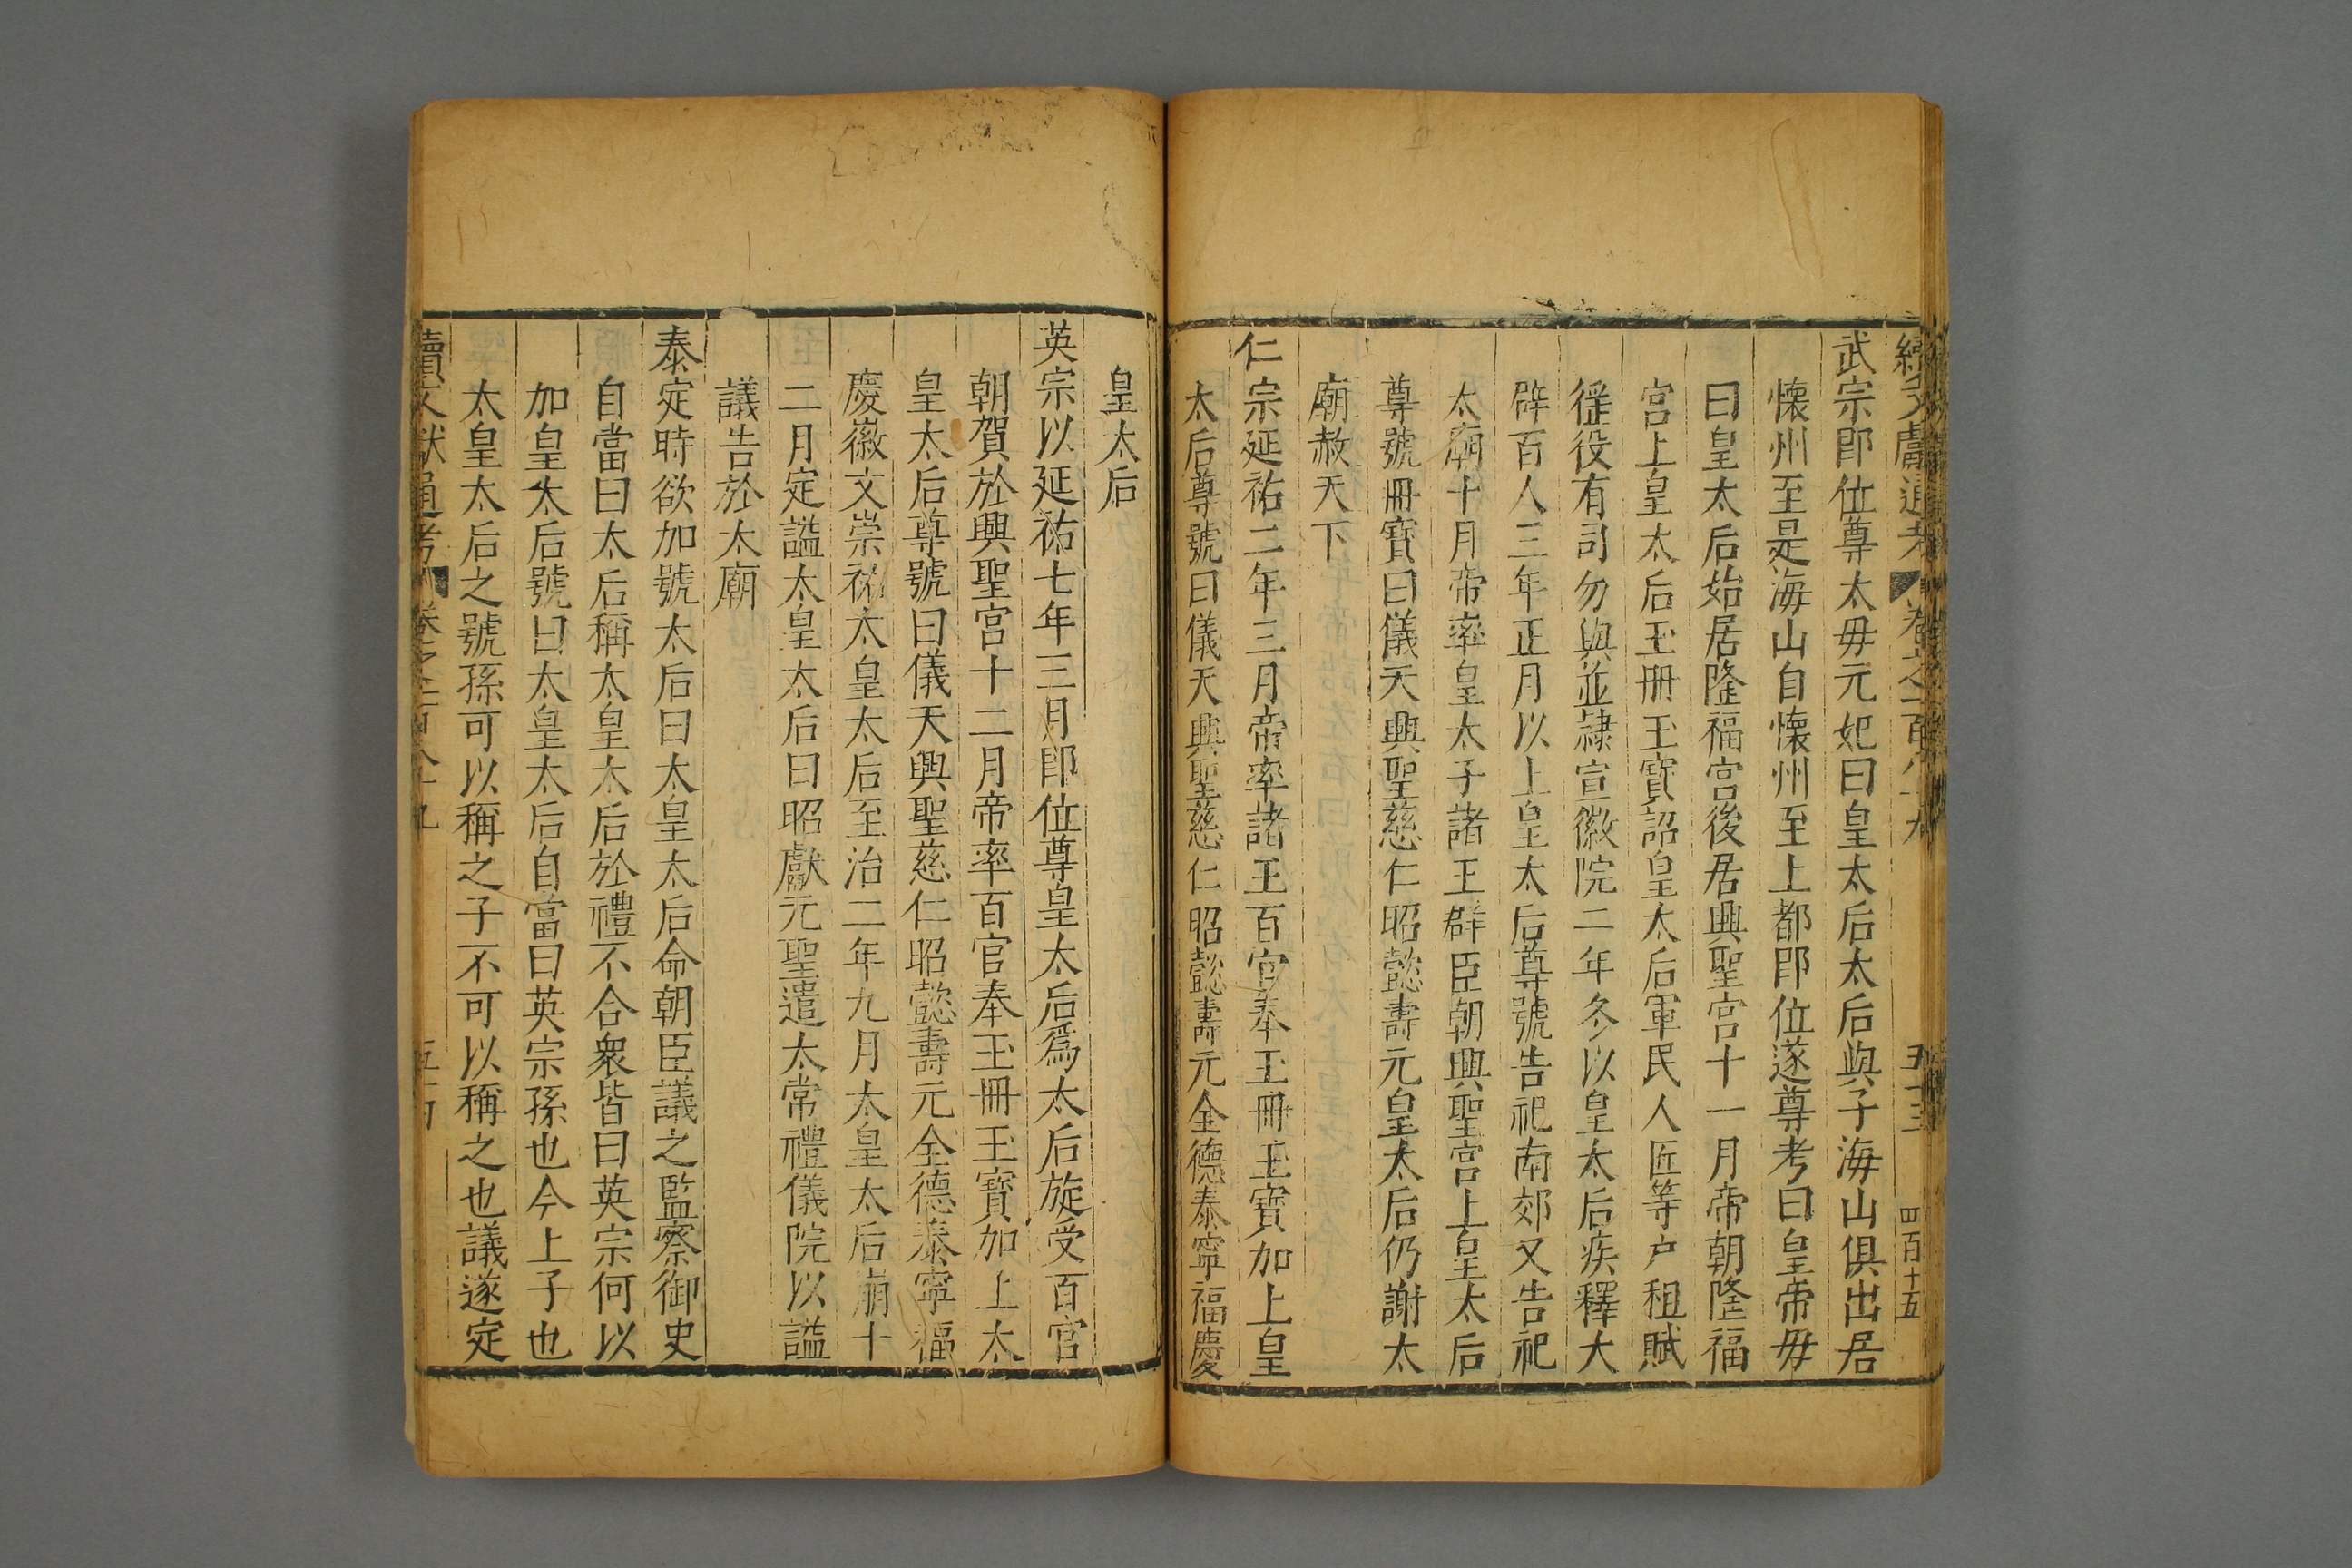 續文獻通考 卷之一百八十九 五十三 四百十五
武宗卽位尊太母元妃曰皇太后太后與子海山俱出居
懷州至是海山自懷州至上都卽位遂尊考曰皇帝母
曰皇太后始居隆福宮後居興聖宮十一月帝朝隆福
宮上皇太后玉冊玉寶詔皇太后軍民人匠等户租賦
徭役有司勿與並隷宣徽院二年冬以皇太后疾釋大
辟百人三年正月以上皇太后尊號告祀南郊又告祀
太廟十月帝率皇太子諸王群臣朝興聖宮上皇太后
尊號冊寶曰儀天興聖慈仁昭懿壽元皇太后仍謝太
廟赦天下
仁宗延祐二年三月帝率諸王百官奉玉冊玉寶加上皇
太后尊號曰儀天興聖慈仁昭懿壽元全德泰寧福慶
皇太后
英宗以延祐七年三月卽位尊皇太后爲太后旋受百官
朝賀於興聖宮十二月帝率百官奉玉冊玉寶加上太
皇太后尊號曰儀天興聖慈仁昭懿壽元全德泰寧福
慶徽文崇祐太皇太后至治二年九月太皇太后崩十
二月定謚太皇太后曰昭獻元聖遣太常禮儀院以謚
議告於太廟
泰定時欲加號太后曰太皇太后命朝臣議之監察御史
自當曰太后稱太皇太后於禮不合衆皆曰英宗何以
加皇太后號曰太皇太后自當曰英宗孫也今上子也
太皇太后之號孫可以稱之子不可以稱之也議遂定
續文獻通考 卷之一百八十九